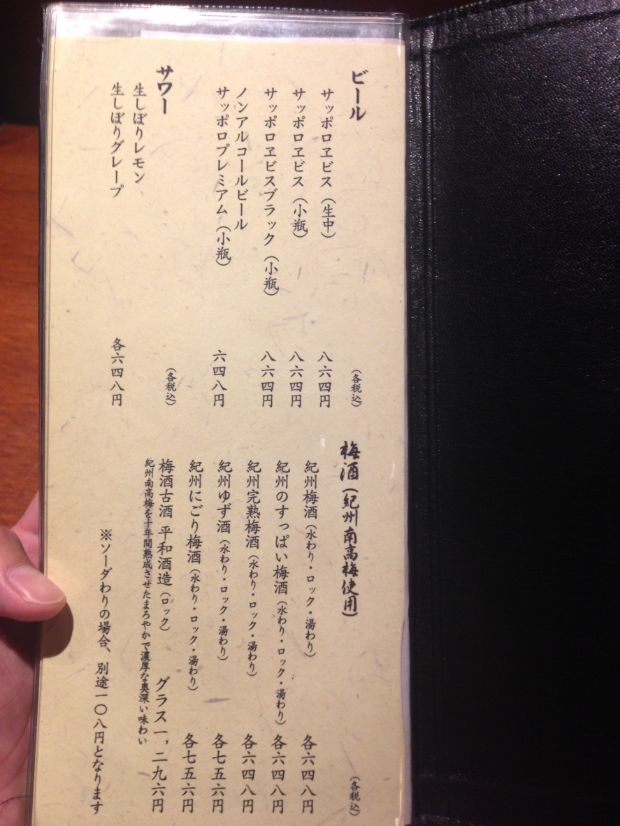 ビール
(各税込)
サッポロヱビス(生中)
八六四円
サッポロヱビス(小瓶)
八六四円
サッポロヱビスブラック(小瓶)
八六四円
ノンアルコールビール
サッポロプレミアム(小瓶)
六四八円
サワー
(各税込)
生しぼりレモン
生しぼりグレープ
各六四八円
梅酒(紀州南高梅使用)
(各税込)
紀州梅酒(水わり・ロック・湯わり)
各六四八円
紀州のすっぱい梅酒(水わり・ロック・湯わり)
各六四八円
紀州完熟梅酒(水わり・ロック・湯わり)
各六四八円
紀州ゆず酒(水わり・ロック・湯わり)
各七五六円
紀州にごり梅酒(水わり・ロック・湯わり)
各七五六円
梅酒古酒 平和酒造(ロック)
グラス一,二九六円
紀州南高梅を十年間熟成させたまろやかで濃厚な奥深い味わい
※ソーダわりの場合、別途一〇八円となります